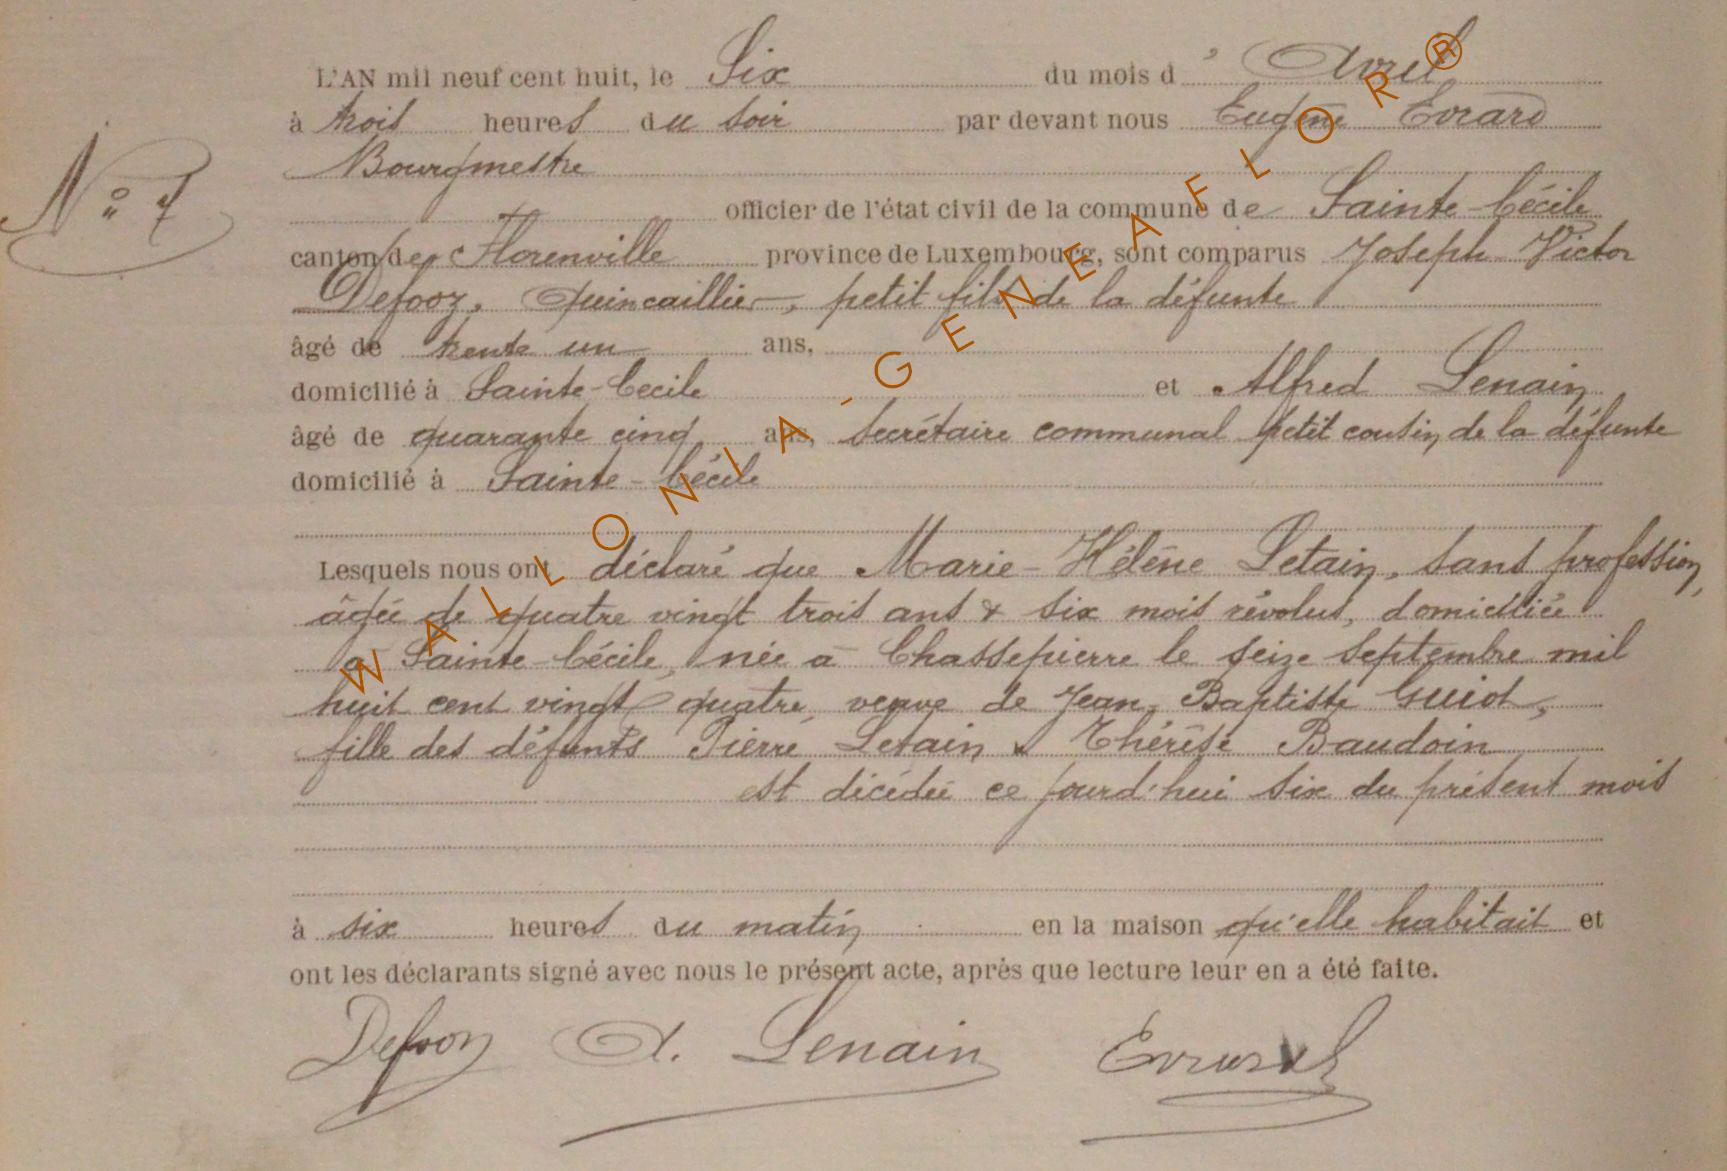 L'AN mil neuf cent huit, le Six du mois d' Avril
à trois heures du soir par devant nous Eugène Evrard
Bourgmestre
N° 7
officier de l'état civil de la commune de Sainte-Cécile
canton de Florenville province de Luxembourg, sont comparus Joseph Victor
Defooz, Quincaillier, petit fils de la défunte
âgé de trente un ans,
domicilié à Sainte-Cecile et Alfred Lenain
âgé de quarante cinq ans, Secrétaire communal petit cousin de la défunte
domicilié à Sainte-Cécile
Lesquels nous ont déclaré que Marie-Hélène Letain, sans profession,
âgée de quatre vingt trois ans & six mois révolus, domiciliée
à Sainte-Cécile, née à Chassepierre le seize Septembre mil
huit cent vingt quatre, veuve de Jean Baptiste Guiot,
fille des défunts Pierre Letain & Thérèse Baudoin
est décédée ce jourd'hui six du présent mois
à six heures du matin en la maison qu'elle habitait et
ont les déclarants signé avec nous le présent acte, après que lecture leur en a été faite.
Defooz A. Lenain Evrard
WALLONIA-GENEAFLOR®